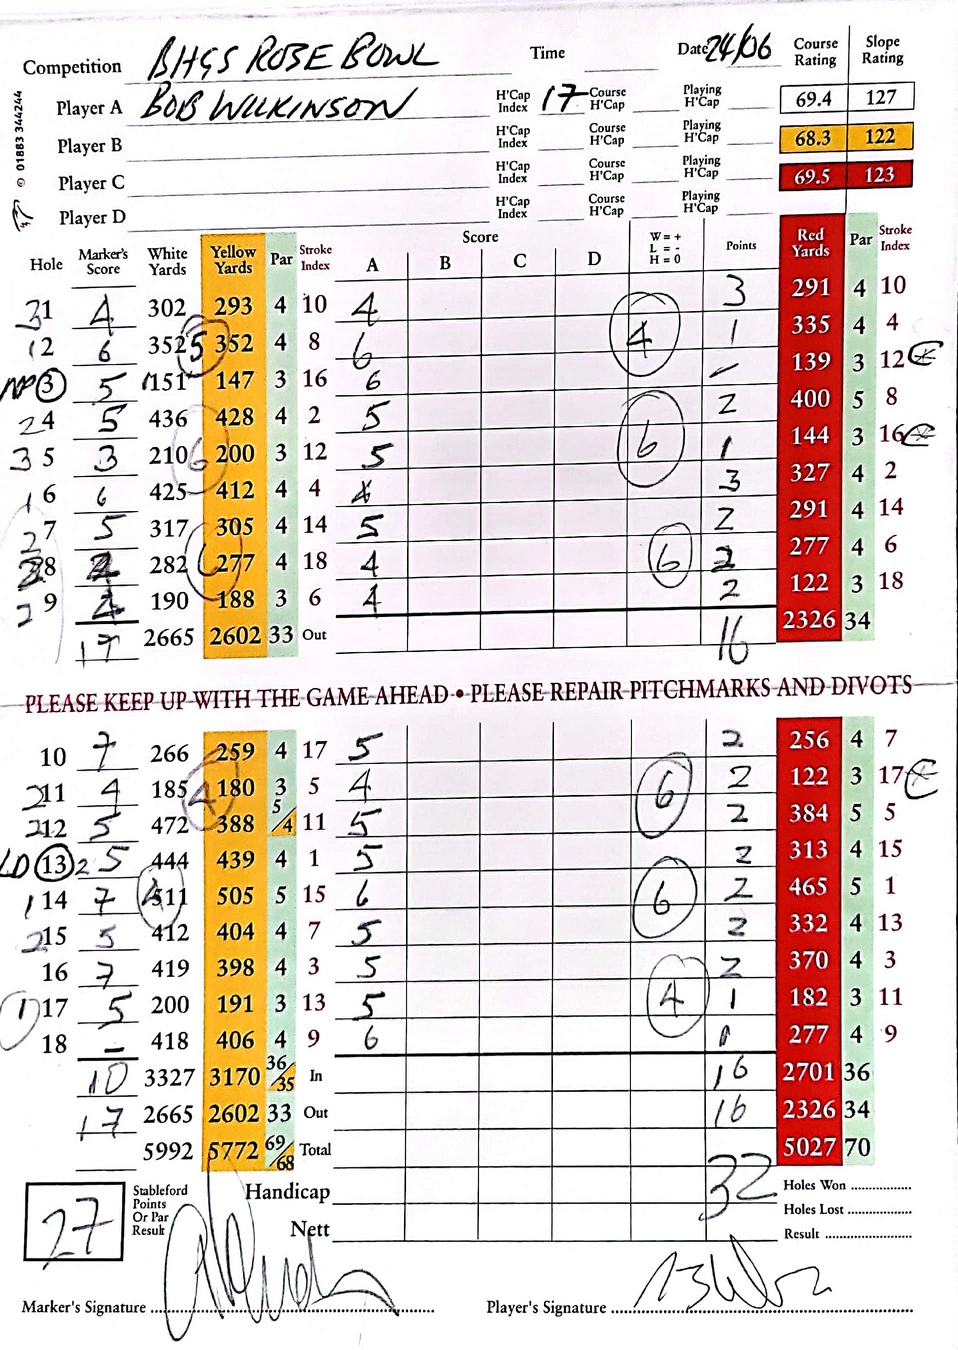 Competition BHGS ROSE BOWL Time Date 24/06 Course Rating Slope Rating
Player A BOB WILKINSON H'Cap Index 17 Course H'Cap Playing H'Cap 69.4 127
Player B H'Cap Index Course H'Cap Playing H'Cap 68.3 122
Player C H'Cap Index Course H'Cap Playing H'Cap 69.5 123
Player D H'Cap Index Course H'Cap Playing H'Cap
© 01883 344244
Hole Marker's Score White Yards Yellow Yards Par Stroke Index Score A B C D W = + L = - H = 0 Points Red Yards Par Stroke Index
3 1 4 302 293 4 10 4 3 291 4 10
1 2 6 352 5 352 4 8 6 4 1 335 4 4
NP 3 5 151 147 3 16 6 - 139 3 12
2 4 5 436 428 4 2 5 2 400 5 8
3 5 3 210 6 200 3 12 5 6 1 144 3 16
1 6 6 425 412 4 4 4 3 327 4 2
2 7 5 317 305 4 14 5 2 291 4 14
2 8 282 6 277 4 18 4 6 2 277 4 6
2 9 4 190 188 3 6 4 2 122 3 18
17 2665 2602 33 Out 16 2326 34
PLEASE KEEP UP WITH THE GAME AHEAD • PLEASE REPAIR PITCHMARKS AND DIVOTS
10 7 266 259 4 17 5 2 256 4 7
2 11 4 185 4 180 3 5 4 6 2 122 3 17
2 12 5 472 388 5/4 11 5 2 384 5 5
LD 13 2 5 444 439 4 1 5 2 313 4 15
1 14 7 511 505 5 15 6 6 2 465 5 1
2 15 5 412 404 4 7 5 2 332 4 13
16 7 419 398 4 3 5 2 370 4 3
1 17 5 200 191 3 13 5 4 1 182 3 11
18 - 418 406 4 9 6 1 277 4 9
10 3327 3170 36/35 In 16 2701 36
17 2665 2602 33 Out 16 2326 34
5992 5772 69/68 Total 5027 70
27 Stableford Points Or Par Result Handicap 32 Holes Won
Nett Holes Lost
Result
Marker's Signature Player's Signature